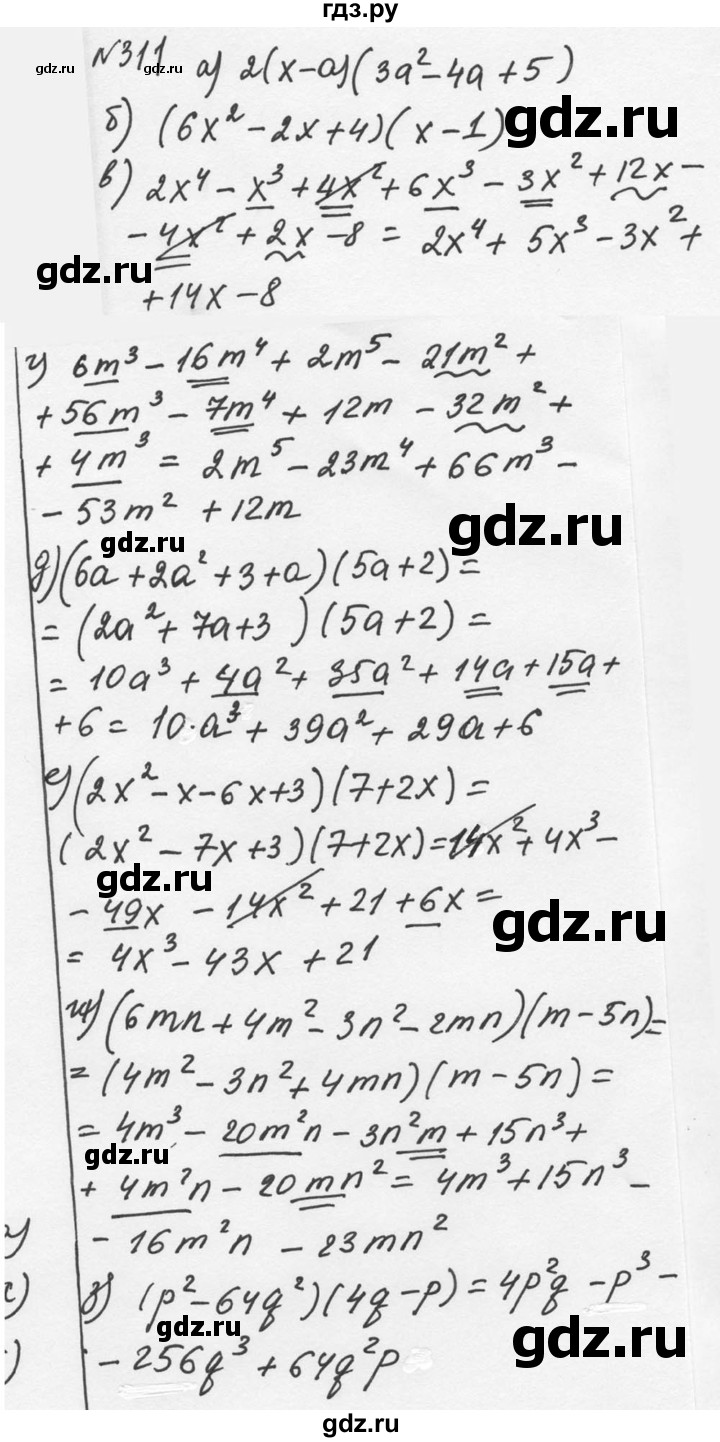 гдз.ру
gdz.ru gdz.ru gdz.ru
№311 а) 2(x-a)(3a²-4a+5)
gdz.ru
б) (6x²-2x+4)(x-1)
в) 2x⁴ - x³ + 4x² + 6x³ - 3x² + 12x -
- 4x² + 2x - 8 = 2x⁴ + 5x³ - 3x² +
gdz.ru gdz.ru
+ 14x - 8
г) 6m³ - 16m⁴ + 2m⁵ - 21m² +
+ 56m³ - 7m⁴ + 12m - 32m² +
+ 4m³ = 2m⁵ - 23m⁴ + 66m³ -
- 53m² + 12m
gdz.ru gdz.ru
д) (6a + 2a² + 3 + a)(5a+2) =
= (2a² + 7a + 3)(5a+2) =
= 10a³ + 4a² + 35a² + 14a + 15a +
+ 6 = 10·a³ + 39a² + 29a + 6
е) (2x² - x - 6x + 3)(7+2x) =
(2x² - 7x + 3)(7+2x) = 14x² + 4x³ -
gdz.ru
- 49x - 14x² + 21 + 6x =
gdz.ru
= 4x³ - 43x + 21
ж) (6mn + 4m² - 3n² - 2mn)(m - 5n) =
= (4m² - 3n² + 4mn)(m - 5n) =
= 4m³ - 20m²n - 3n²m + 15n³ +
gdz.ru
+ 4m²n - 20mn² = 4m³ + 15n³ -
- 16m²n - 23mn²
з) (p² - 64q²)(4q - p) = 4p²q - p³ -
gdz.ru gdz.ru
- 256q³ + 64q²p
gdz.ru